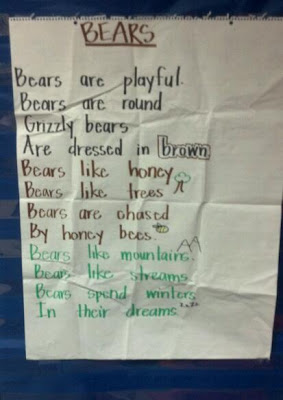 BEARS
Bears are playful.
Bears are round
Grizzly bears
Are dressed in brown
Bears like honey
Bears like trees
Bears are chased
By honey bees.
Bears like mountains.
Bears like streams
Bears spend winters
In their dreams